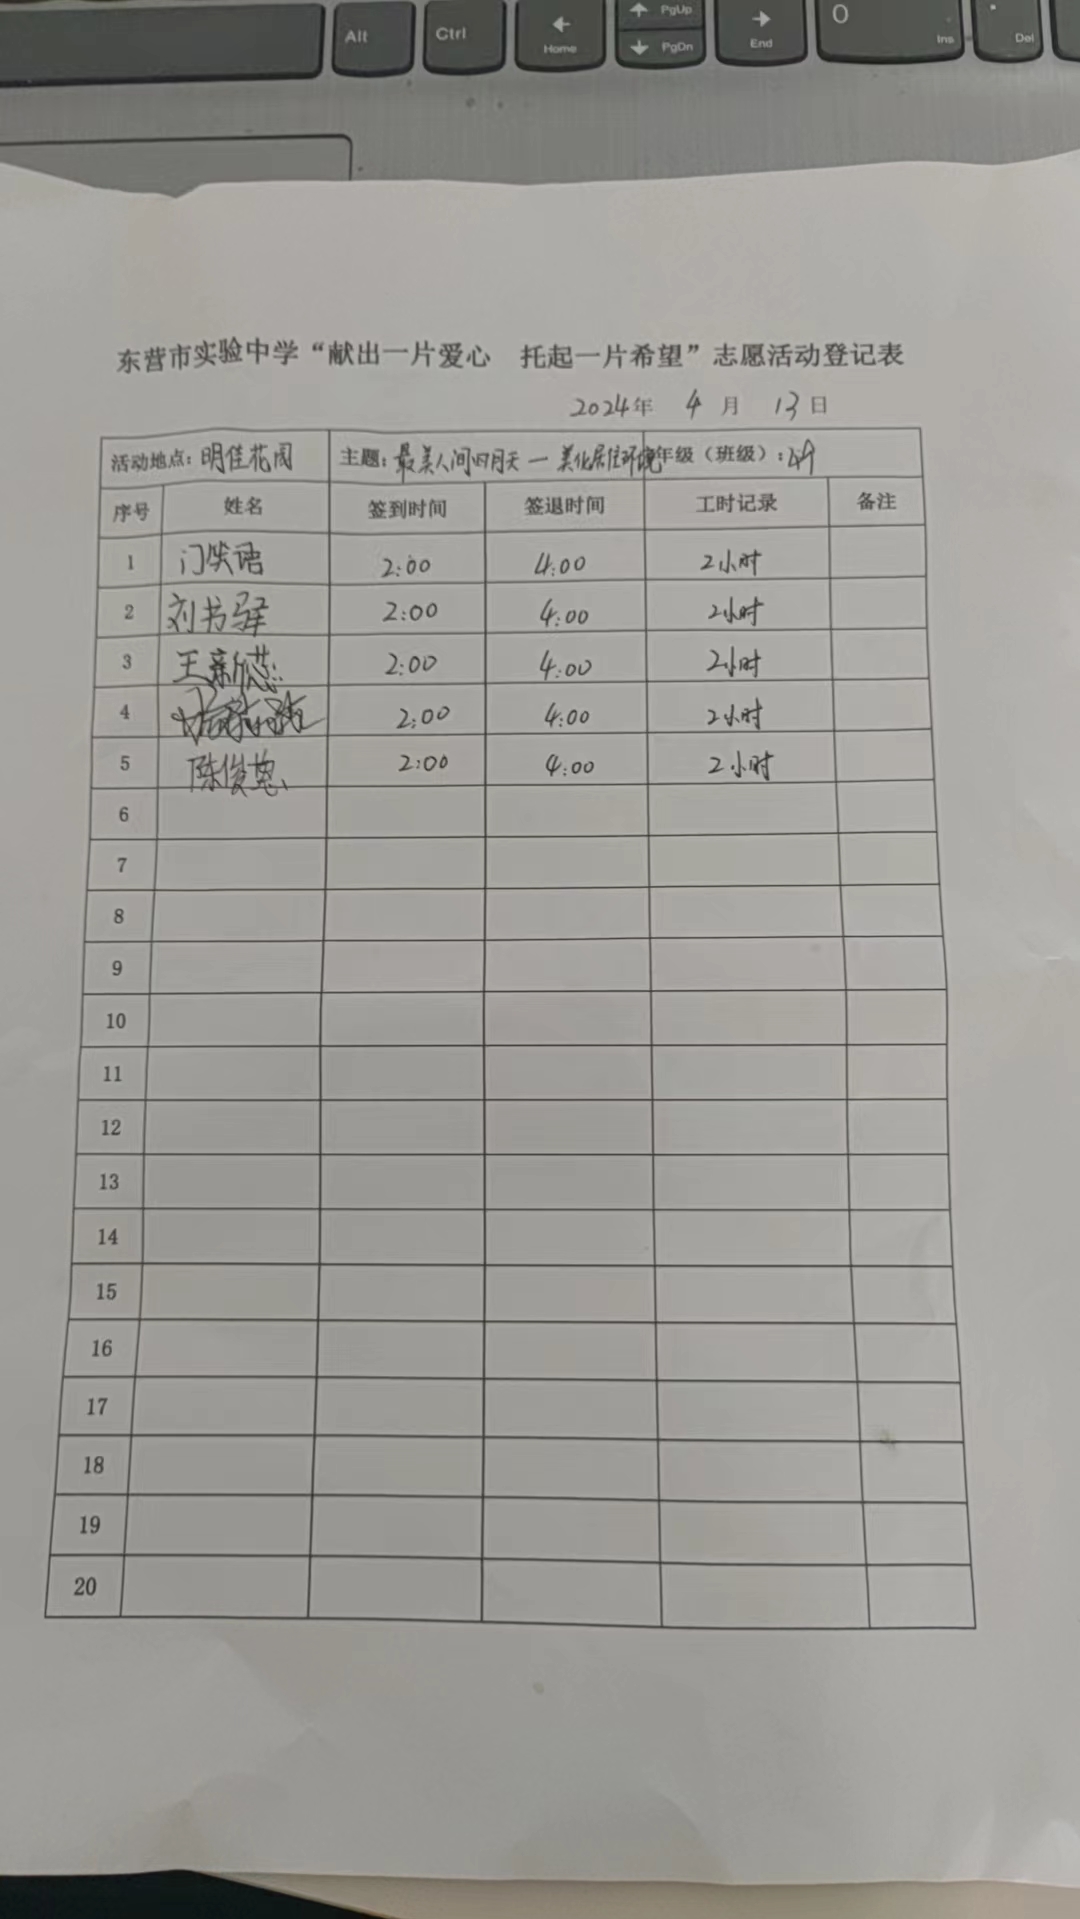 Alt Ctrl ← Home ↑ PgUp ↓ PgDn → End 0 Ins . Del
东营市实验中学“献出一片爱心 托起一片希望”志愿活动登记表
2024年 4 月 13 日
活动地点：明佳花园 主题：最美人间四月天—美化居住环境 年级（班级）：
序号 姓名 签到时间 签退时间 工时记录 备注
1 门笑语 2:00 4:00 2小时
2 刘书驿 2:00 4:00 2小时
3 王新蕊 2:00 4:00 2小时
4 2:00 4:00 2小时
5 陈俊 2:00 4:00 2小时
6
7
8
9
10
11
12
13
14
15
16
17
18
19
20